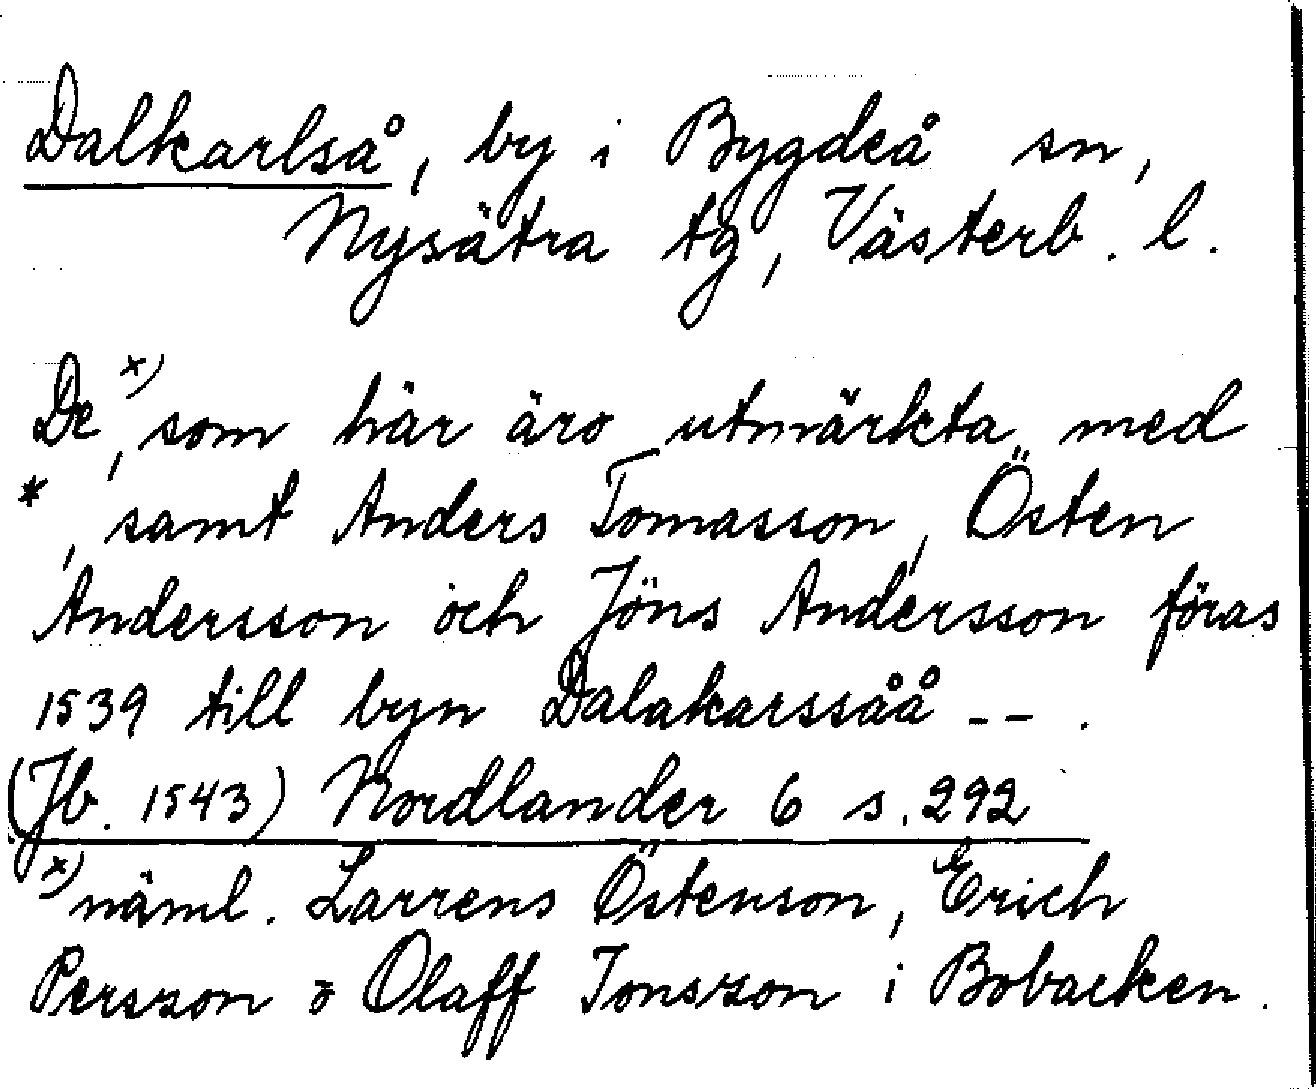 Dalkarlså, by i Bygdeå sn,
Nysätra tg, Västerb. l.
De x), som här äro utmärkta med
*, samt Anders Tomasson, Östen
Andersson och Jöns Andersson föras
1539 till byn Dalakarssåå -- .
(Jb. 1543) Nordlander 6 s. 292
x) näml. Larrens Östenson, Erich
Perszon o Olaff Jonszon i Bobacken.